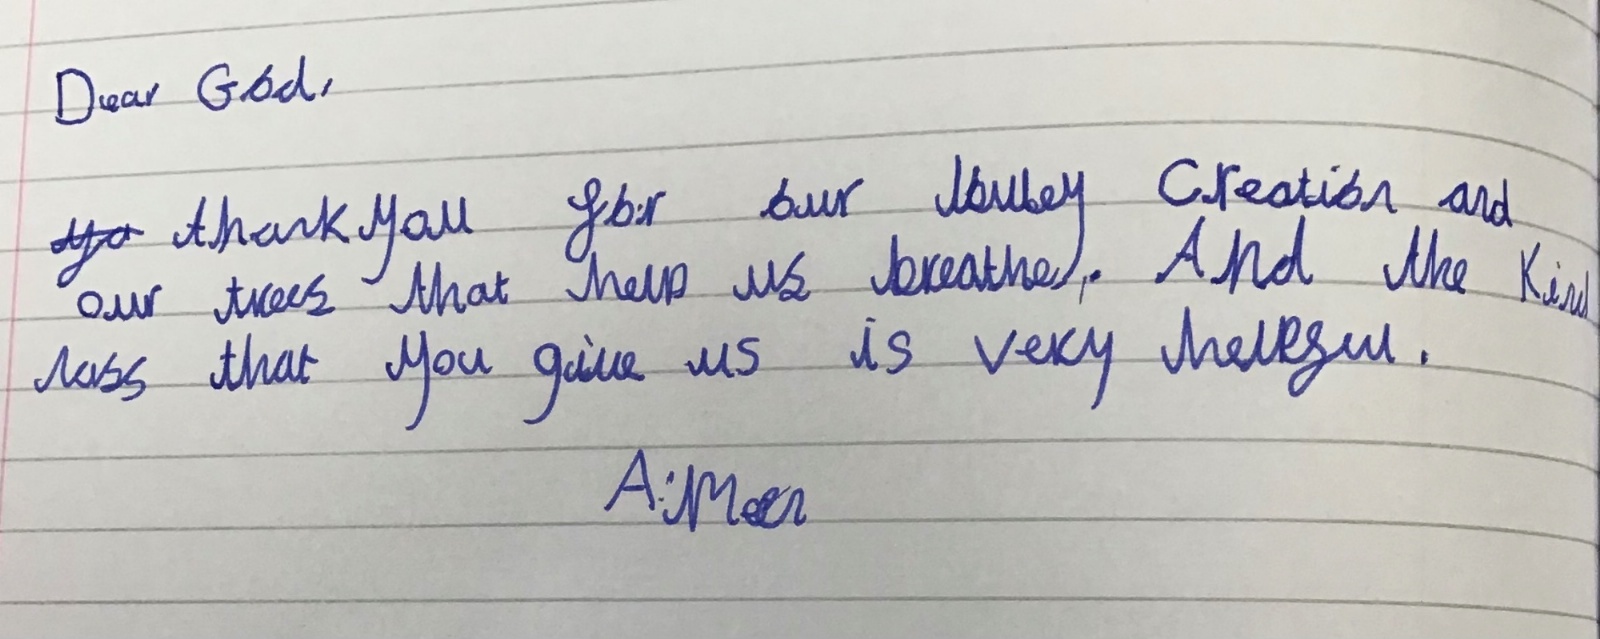 Dear God,
thank you for our louley Creation and
our trees that help us breathe,. And the Kind
nass that you give us is very helpful.
A:Men